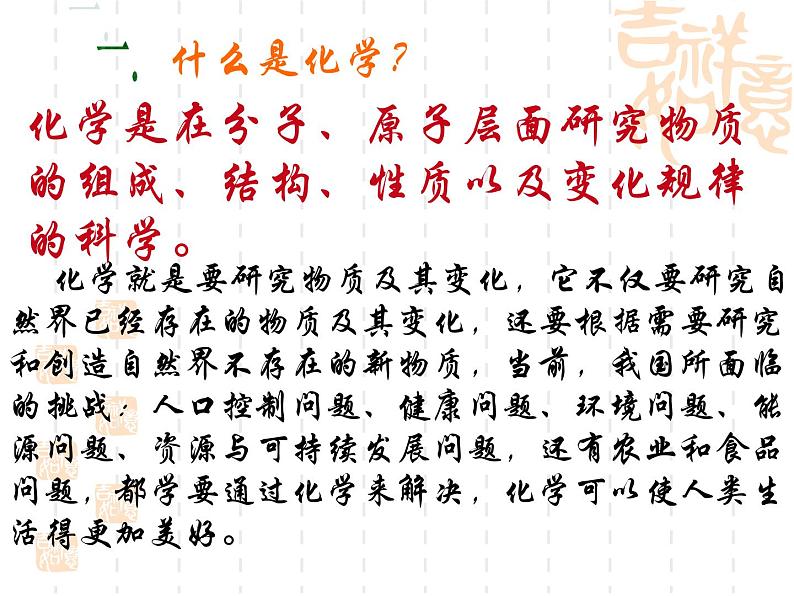 一. 什么是化学?
化学是在分子、原子层面研究物质
的组成、结构、性质以及变化规律
的科学。
化学就是要研究物质及其变化，它不仅要研究自
然界已经存在的物质及其变化，还要根据需要研究
和创造自然界不存在的新物质，当前，我国所面临
的挑战：人口控制问题、健康问题、环境问题、能
源问题、资源与可持续发展问题，还有农业和食品
问题，都学要通过化学来解决，化学可以使人类生
活得更加美好。
吉祥
如意